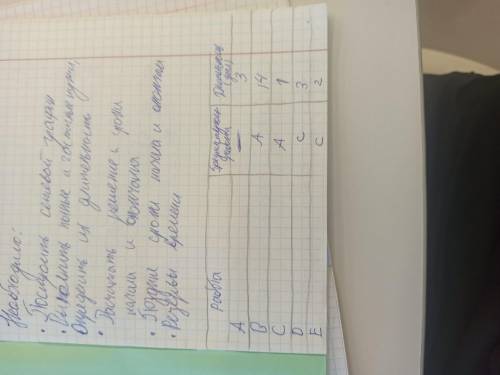 Необходимо:
• Построить сетевой график
• Выполнить полные и частные пути,
Определить их длительность
• Рассчитать ранние сроки
начала и окончания
• Поздние сроки начала и окончания
• Резервы времени
Работа Предшествующие работы Длительность (дни)
A — 3
B A 14
C A 1
D C 3
E C 2